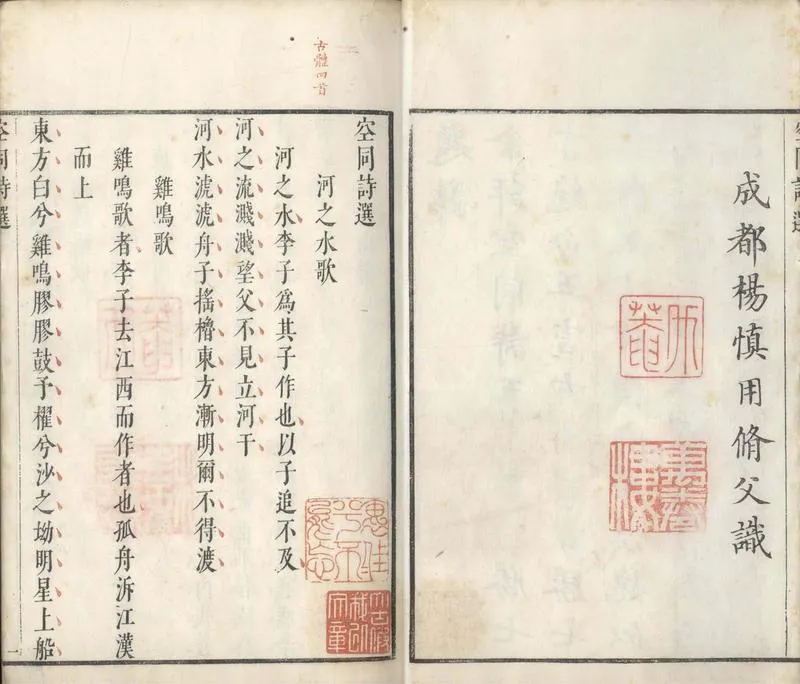 成都楊慎用脩父識
古體四首
空同詩選
河之水歌
河之水李子為其子作也以子追不及
河之流濺濺望父不見立河干
河水滮滮舟子搖櫓東方漸明爾不得渡
雞鳴歌
雞鳴歌者李子去江西而作者也孤舟泝江漢
而上
東方白兮雞鳴膠膠鼓予櫂兮沙之坳明星上船
空同詩選
一